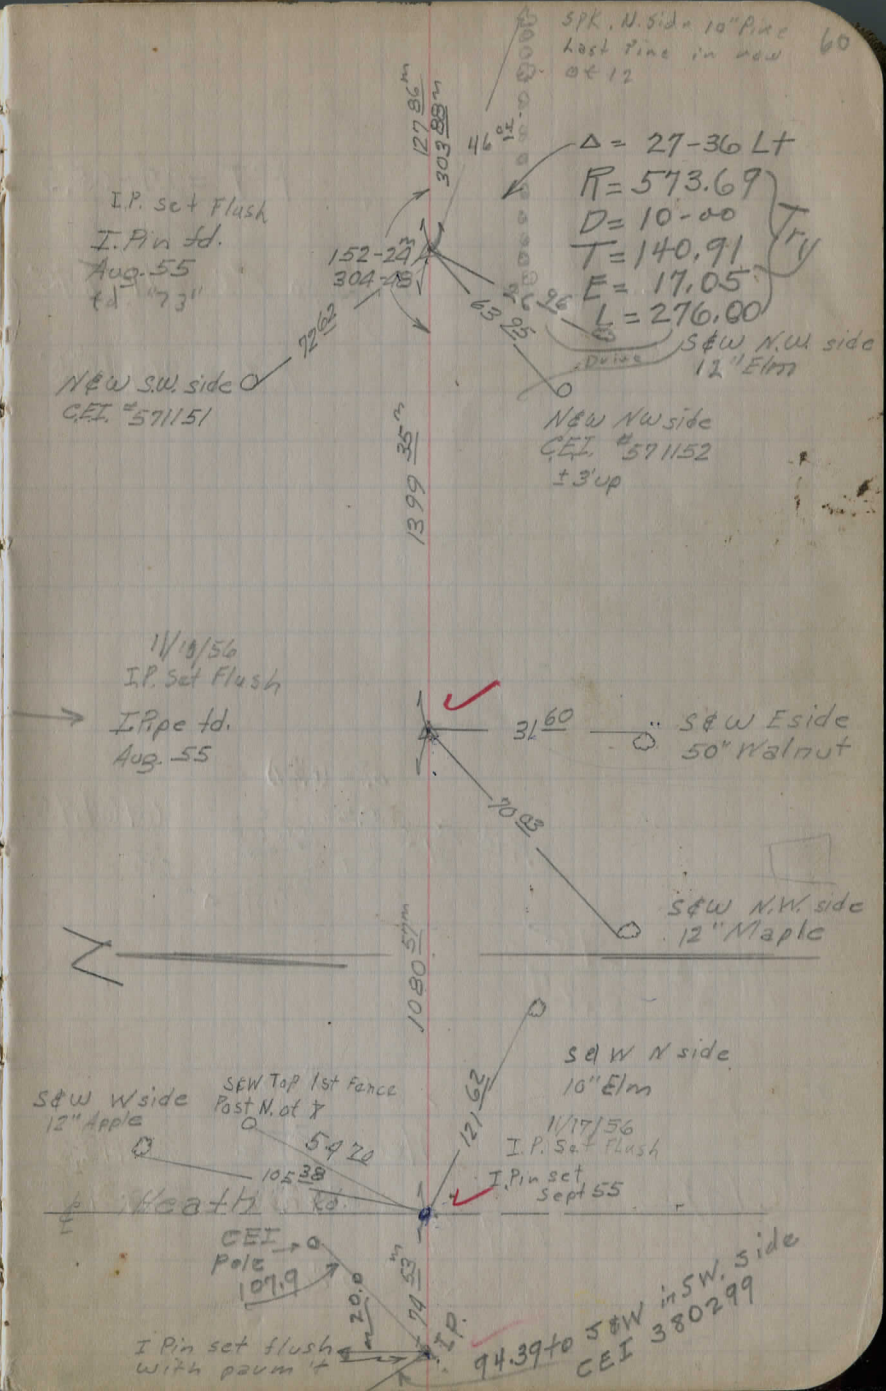 60
SPK. N. side 10" Pine
Last Pine in row
of 12
127 86 m
303 88 m
46
Δ = 27-36 Lt
R = 573.69
D = 10-00
T = 140.91
E = 17.05
L = 276.00
Try
I.P. set Flush
I. Pin fd.
Aug. 55
fd "73"
152-24
304-48
72 62
26 96
63 95
Drive
S&W N.W. side
12" Elm
N&W S.W. side
C.E.I. #571151
N&W NW side
C.E.I. #571152
± 3' up
1399 35 m
I.P. Set Flush
I. Pipe fd.
Aug. 55
31 60
S&W E side
50" Walnut
70 93
S&W N.W. side
12" Maple
N
1080 57 m
S&W N side
10" Elm
121 62
S&W Top 1st Fence
Post N. of
S&W W side
12" Apple
11/17/56
I.P. Set Flush
I. Pin set
Sept 55
105 38
Heath Rd.
CEI
Pole
107.9
20.0
74 53 m
I.P.
I Pin set flush
with pavm't
94.39 to S&W in S.W. side
CEI 380299